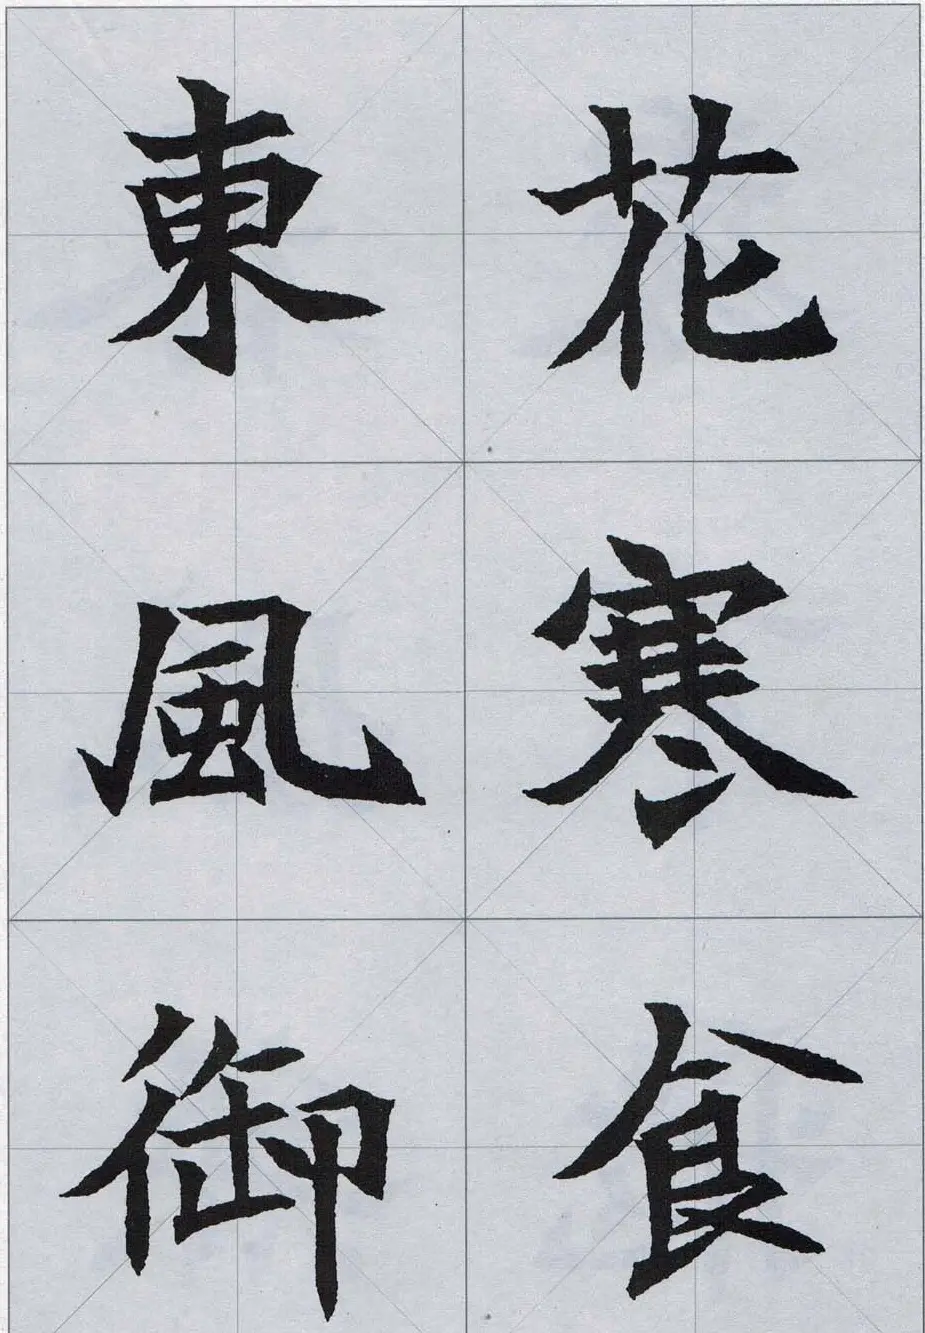 花寒食
東風御